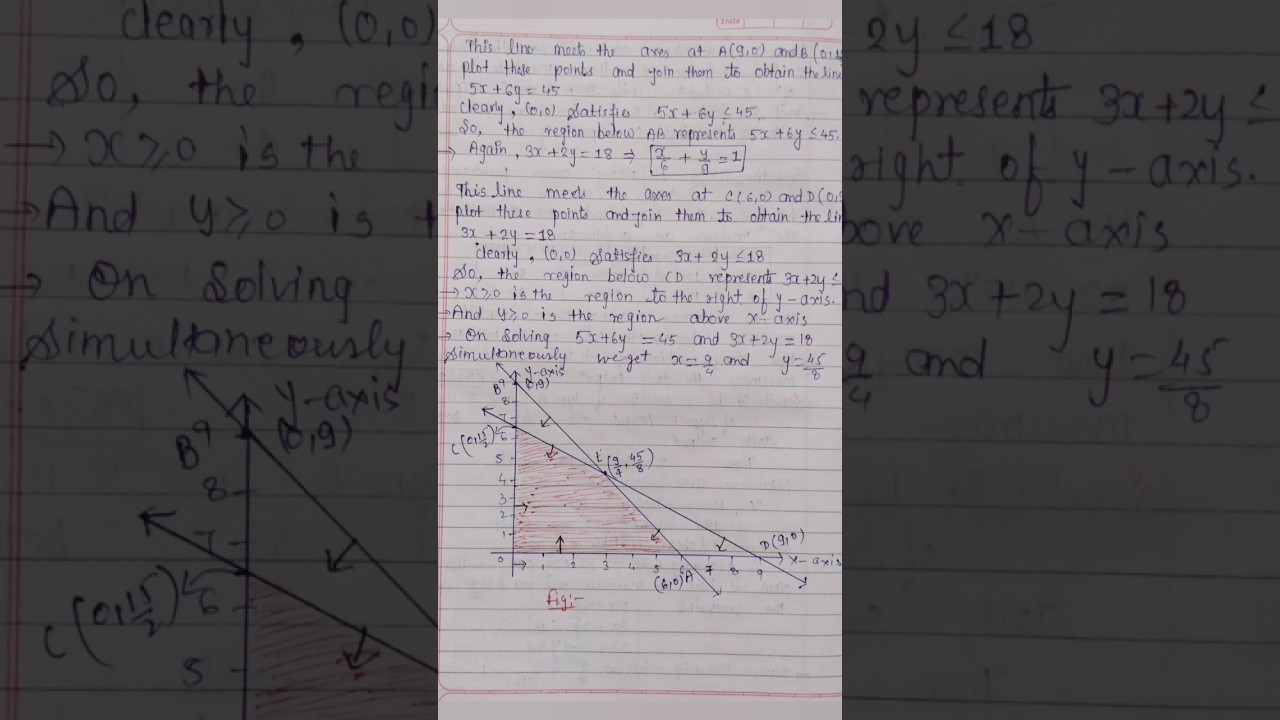 This line meets the axes at A(9,0) and B(0,
plot these points and join them to obtain the line
5x+6y=45
clearly, (0,0) Satisfies 5x+6y≤45.
So, the region below AB represents 5x+6y≤45.
→ Again, 3x+2y=18 ⇒ x/6 + y/9 = 1
This line meets the axes at C(6,0) and D(0,
plot these points and join them to obtain the lin
3x+2y=18
clearly, (0,0) Satisfies 3x+2y≤18
So, the region below CD represents 3x+2y≤
→ x≥0 is the region to the right of y-axis.
→ And y≥0 is the region above x-axis
→ On Solving 5x+6y=45 and 3x+2y=18
Simultaneously we get x=9/4 and y=45/8
y-axis
B 9 (0,9)
8
7
C(0,15/2)
6
5
E(9/4, 45/8)
4
3
2
1
D(9,0)
0 1 2 3 4 5 6 7 8 9 x-axis
(6,0) A
Fig:-
clearly, (0,0)
So, the regi
→ x≥0 is the
→ And y≥0 is
→ On Solving
Simultaneously
y-axis
B 9 (0,9)
8
7
C(0,15/2)
6
5
2y≤18
represents 3x+2y≤
right of y-axis.
bove x-axis
nd 3x+2y=18
9/4 and y=45/8